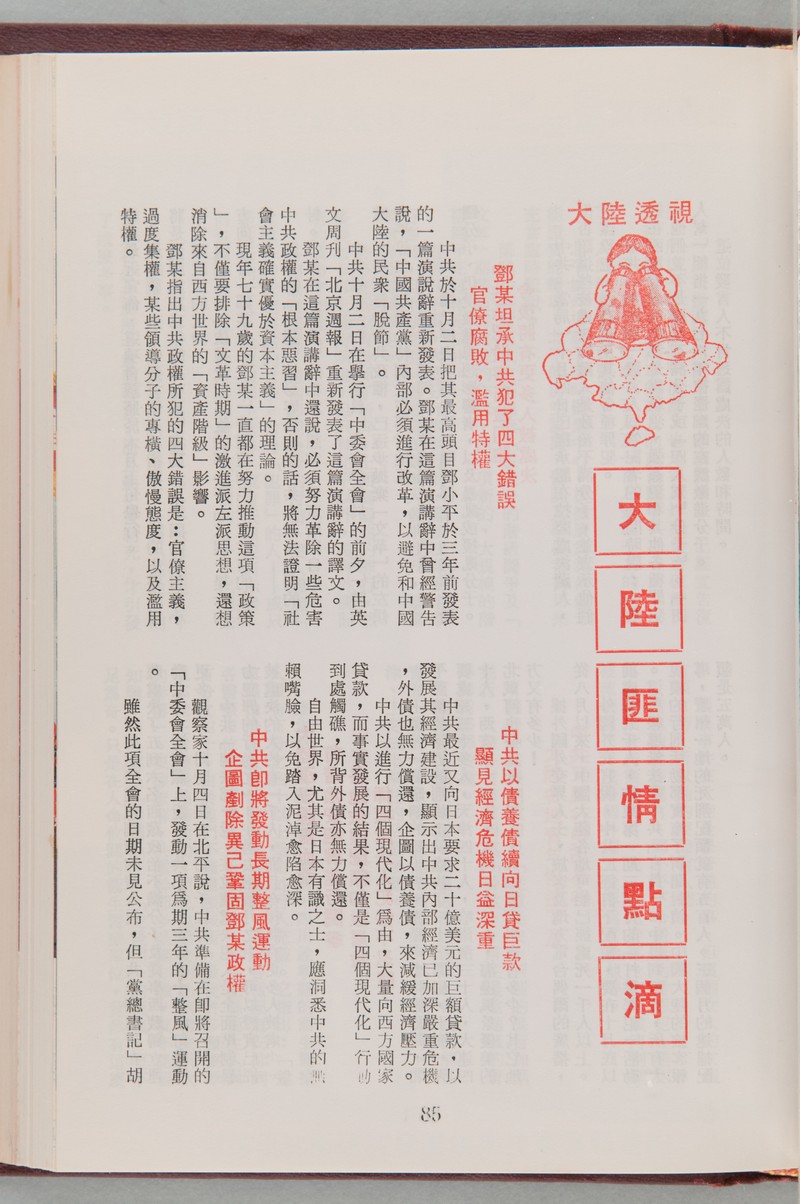 大陸透視
大陸匪情點滴
鄧某坦承中共犯了四大錯誤
官僚腐敗，濫用特權
中共於十月二日把其最高頭目鄧小平於三年前發表
的一篇演說辭重新發表。鄧某在這篇演講辭中曾經警告
說，「中國共產黨」內部必須進行改革，以避免和中國
大陸的民衆「脫節」。
中共十月二日在舉行「中委會全會」的前夕，由英
文周刊「北京週報」重新發表了這篇演講辭的譯文。
鄧某在這篇演講辭中還說，必須努力革除一些危害
中共政權的「根本惡習」，否則的話，將無法證明「社
會主義確實優於資本主義」的理論。
現年七十九歲的鄧某一直都在努力推動這項「政策
」，不僅要排除「文革時期」的激進派左派思想，還想
消除來自西方世界的「資產階級」影響。
鄧某指出中共政權所犯的四大錯誤是：官僚主義，
過度集權，某些領導分子的專橫、傲慢態度，以及濫用
特權。
中共以債養債續向日貸巨款
顯見經濟危機日益深重
中共最近又向日本要求二十億美元的巨額貸款，以
發展其經濟建設，顯示出中共內部經濟已加深嚴重危機
，外債也無力償還，企圖以債養債，來減緩經濟壓力。
中共以進行「四個現代化」爲由，大量向西方國家
貸款，而事實發展的結果，不僅是「四個現代化」行動
到處觸礁，所背外債亦無力償還。
自由世界，尤其是日本有識之士，應洞悉中共的無
賴嘴臉，以免踏入泥淖愈陷愈深。
中共卽將發動長期整風運動
企圖剷除異己鞏固鄧某政權
觀察家十月四日在北平說，中共準備在卽將召開的
「中委會全會」上，發動一項爲期三年的「整風」運動
。
雖然此項全會的日期未見公布，但「黨總書記」胡
85